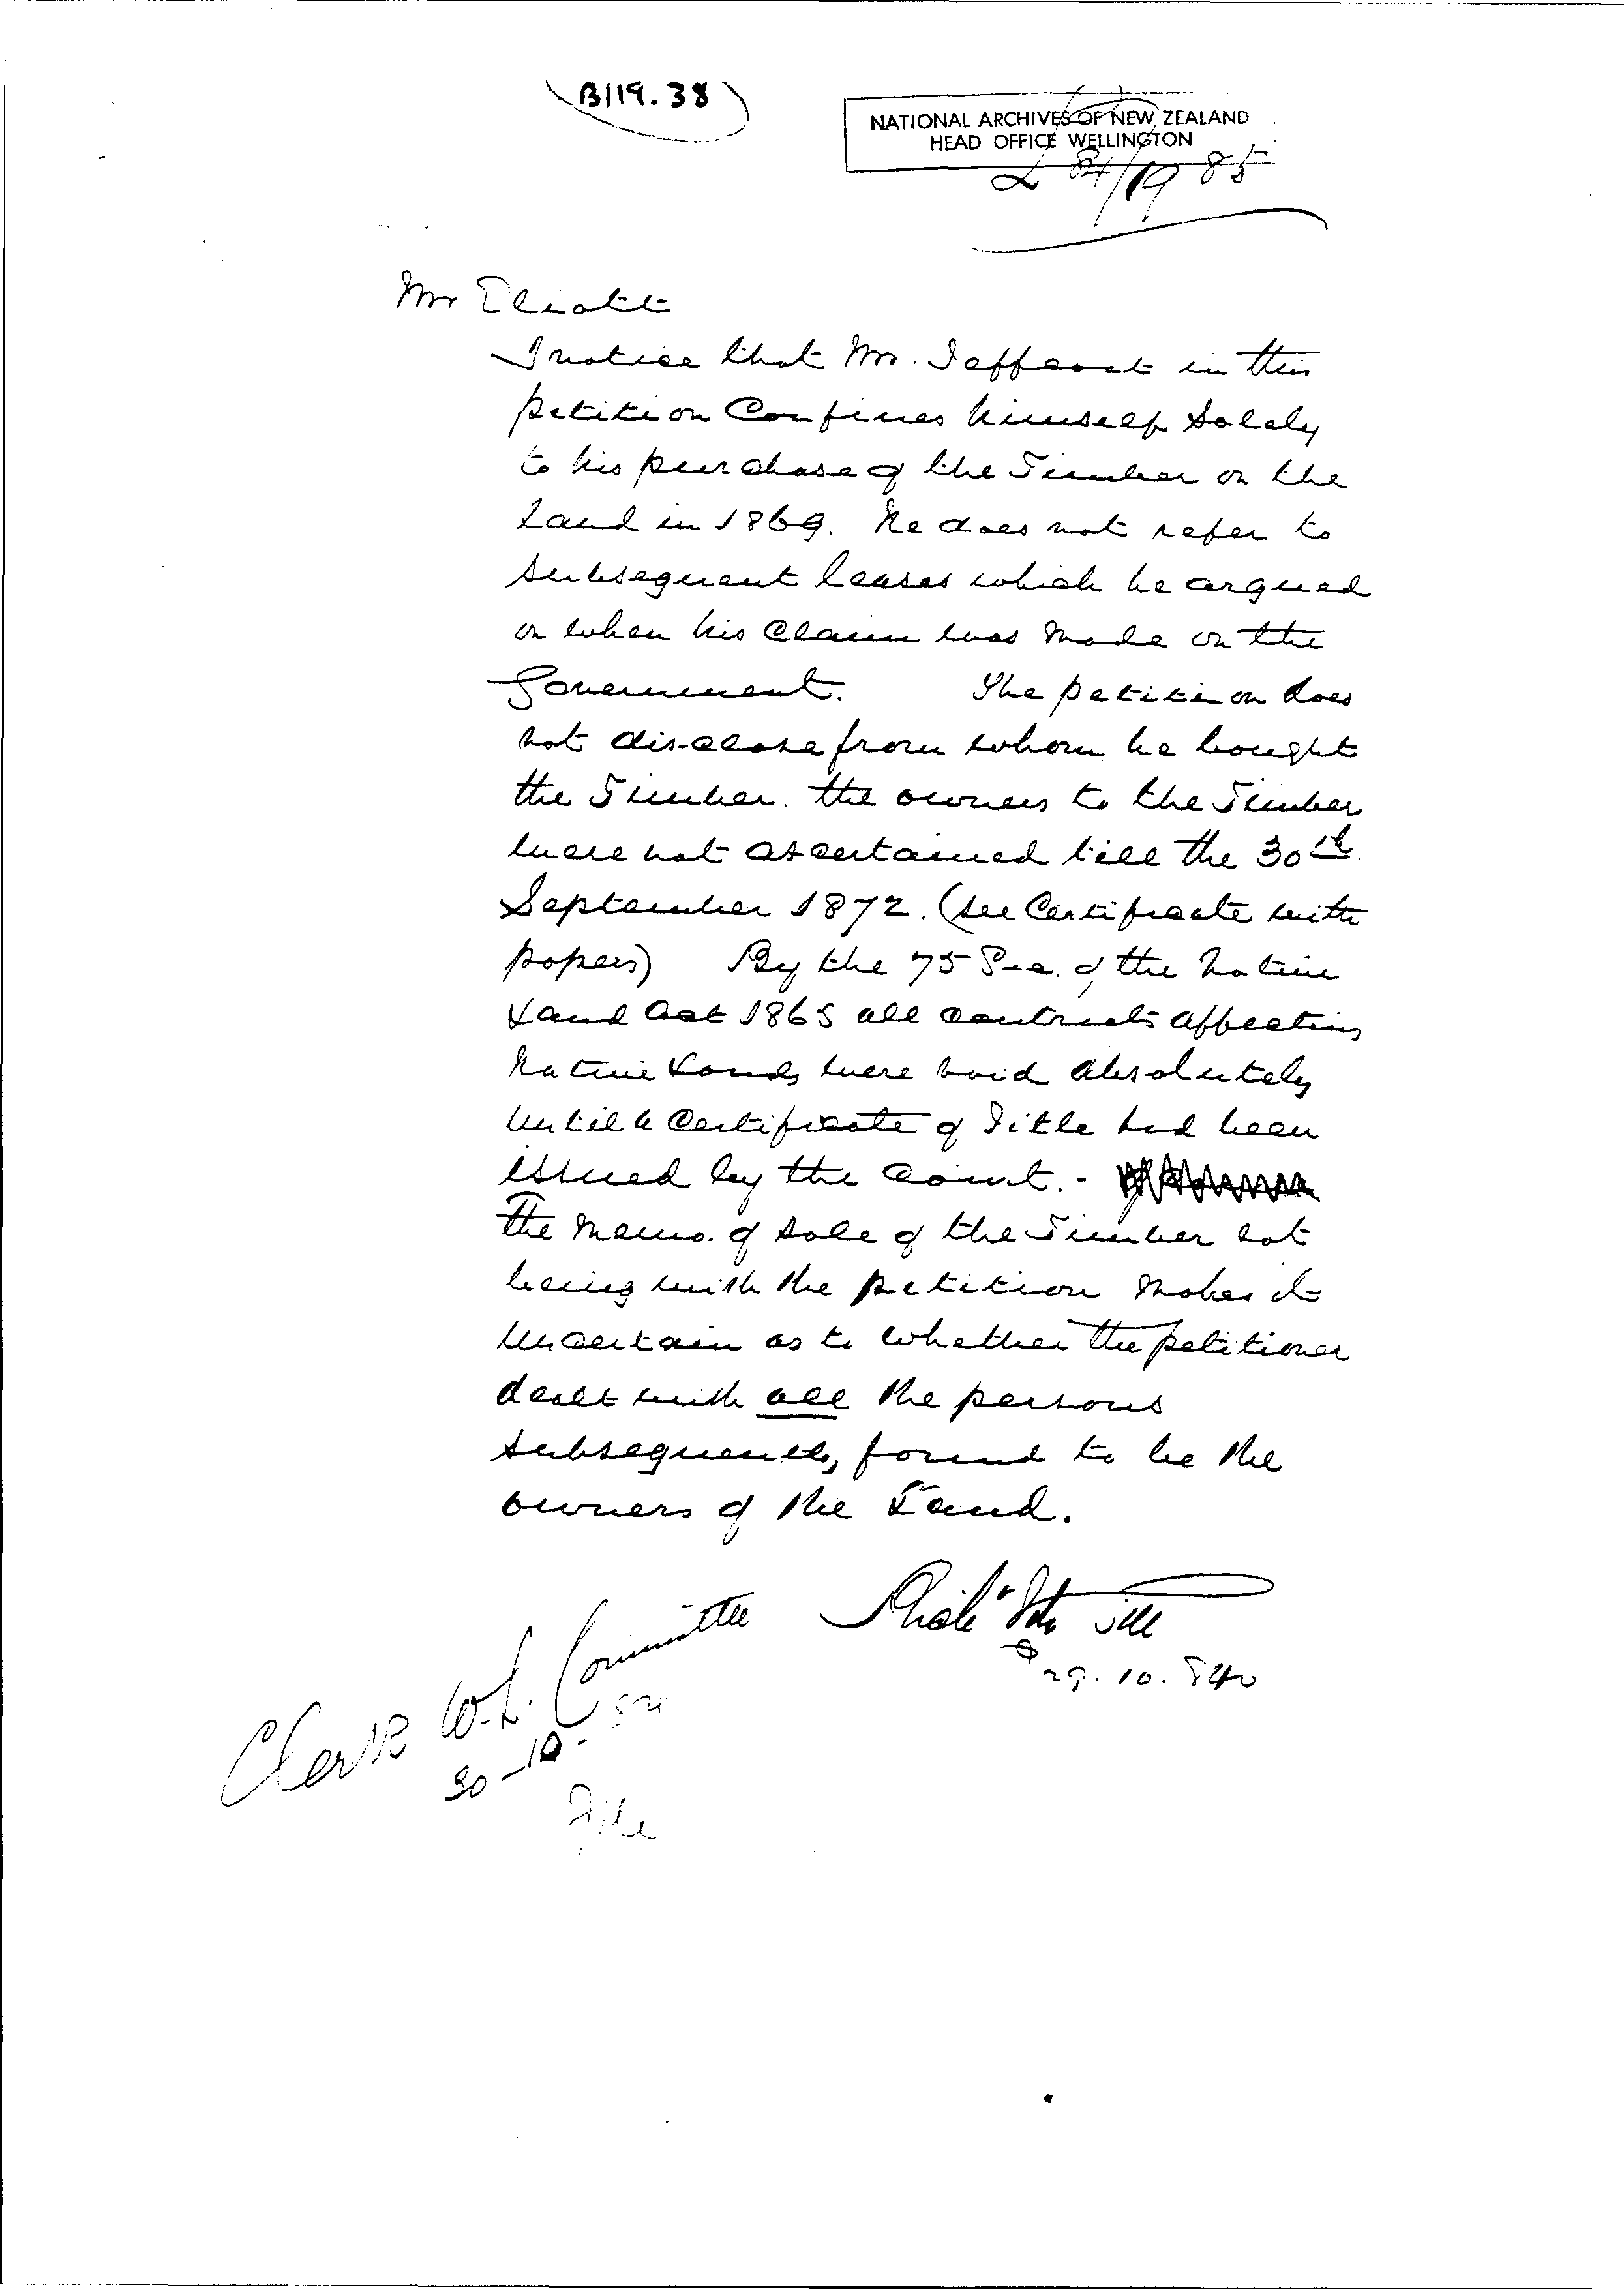 B119.38
NATIONAL ARCHIVES OF NEW ZEALAND
HEAD OFFICE WELLINGTON
Mr Eliott
I notice that Mr. in this
petition Confines himself Solely
to his purchase of the Timber on the
Land in 1869. He does not refer to
subsequent leases which he argued
on when his Claim was made on the
Government. The petition does
not dis-close from whom he bought
the Timber. the owners to the Timber
were not ascertained till the 30th
September 1872. (see Certificate with
papers) By the 75 Sec. of the Native
Land Act 1865 all contracts affecting
Native Lands were void absolutely
until a Certificate of Title had been
issued by the Court. -
The Memo. of sale of the Timber not
being with the petition makes it
uncertain as to whether the petitioner
dealt with all the persons
subsequently found to be the
owners of the Land.
29.10.
Clerk W.L. Committee
30-10-
File